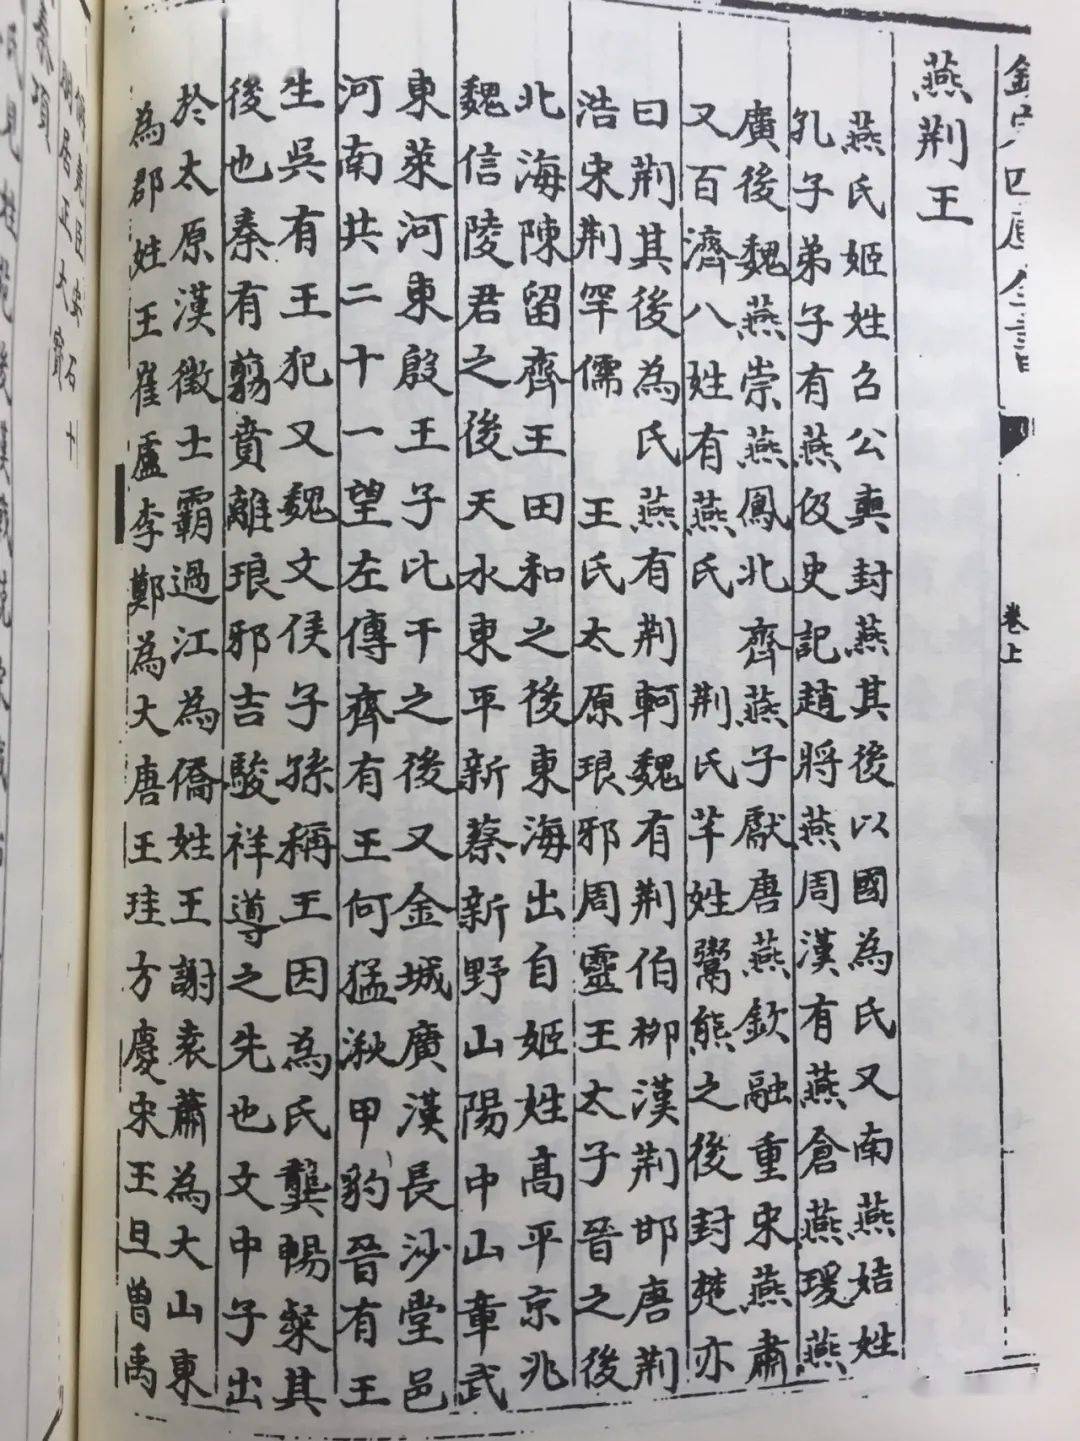 欽定四庫全書
卷上
燕荆王
燕氏姬姓召公奭封燕其後以國為氏又南燕姞姓
孔子弟子有燕伋史記趙將燕周漢有燕倉燕瑗燕
廣後魏燕崇燕鳳北齊燕子獻唐燕欽融重宋燕肅
又百濟八姓有燕氏　荆氏芊姓鬻熊之後封楚亦
曰荆其後為氏燕有荆軻魏有荆伯柳漢荆邯唐荆
浩宋荆罕儒　王氏太原琅邪周靈王太子晉之後
北海陳留齊王田和之後東海出自姬姓高平京兆
魏信陵君之後天水東平新蔡新野山陽中山章武
東萊河東殷王子比干之後又金城廣漢長沙堂邑
河南共二十一望左傳齊有王何猛湫甲豹晉有王
生吳有王犯又魏文侯子孫稱王因為氏龔暢粲其
後也秦有翦賁離琅邪吉駿祥導之先也文中子出
於太原漢徵士霸過江為僑姓王謝袁蕭為大山東
為郡姓王崔盧李鄭為大唐王珪方慶宋王旦曾禹
堯臣安石十
朋居正大寶
項